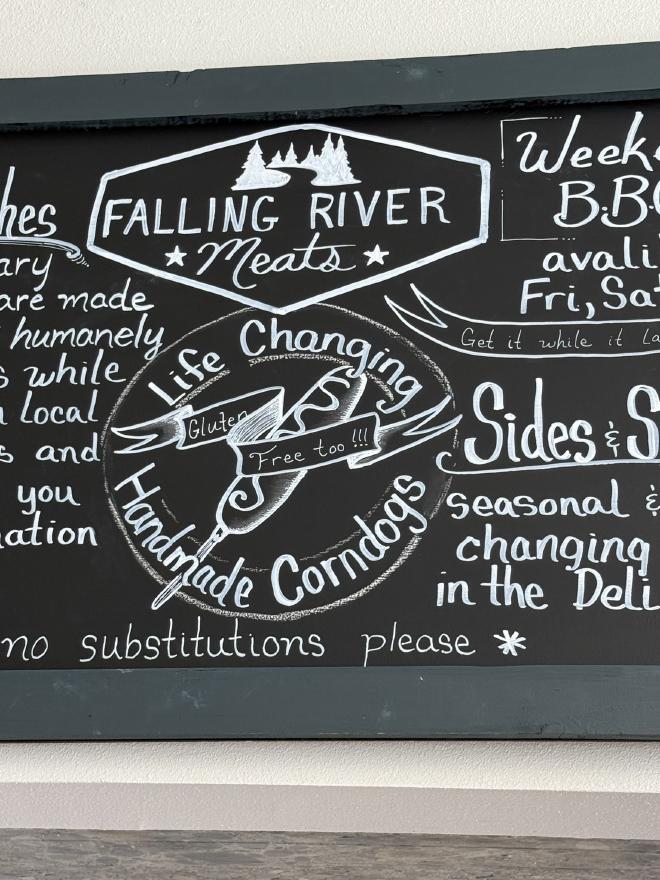 hes
ary
are made
humanely
s while
local
s and
you
ation
FALLING RIVER
Meats
Life Changing
Gluten
Free too !!!
Handmade Corndogs
Week
B.B
avali
Fri, Sat
Get it while it la
Sides & S
seasonal &
changing
in the Deli
no substitutions please *